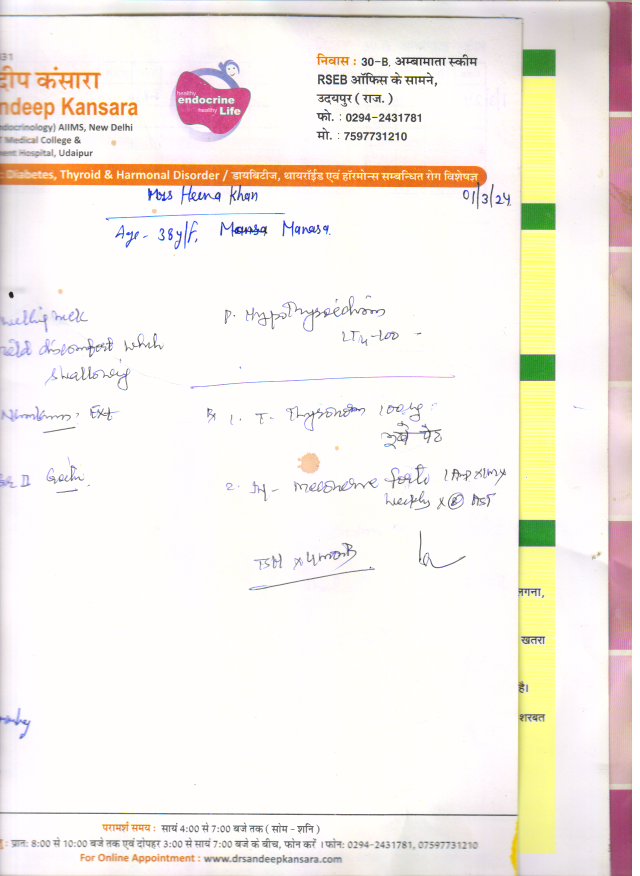 दीप कंसारा
ndeep Kansara
docrinology) AIIMS, New Delhi
Medical College &
ent Hospital, Udaipur
healthy
endocrine
healthy Life
निवास : 30-B, अम्बामाता स्कीम
RSEB ऑफिस के सामने,
उदयपुर ( राज. )
फो. : 0294-2431781
मो. : 7597731210
Diabetes, Thyroid & Harmonal Disorder / डायबिटीज, थायरॉईड एवं हॉरमोन्स सम्बन्धित रोग विशेषज्ञ
Mrs Heena Khan
01/3/24
Age - 38y/f, Manasa.
discomfort which
swallowing
P. Hypothyroidism
LT4-100
Ext
Rx 1. T. Thyronorm 100µg
पेट
II Goitre
2. Inj - meconerve forte 1 Amp x IM x
weekly x 8 AST
TSH x 4 month
लगना,
खतरा
है।
शरबत
परामर्श समय : सायं 4:00 से 7:00 बजे तक ( सोम - शनि )
: प्रात: 8:00 से 10:00 बजे तक एवं दोपहर 3:00 से सायं 7:00 बजे के बीच, फोन करें । फोन: 0294-2431781, 07597731210
For Online Appointment : www.drsandeepkansara.com